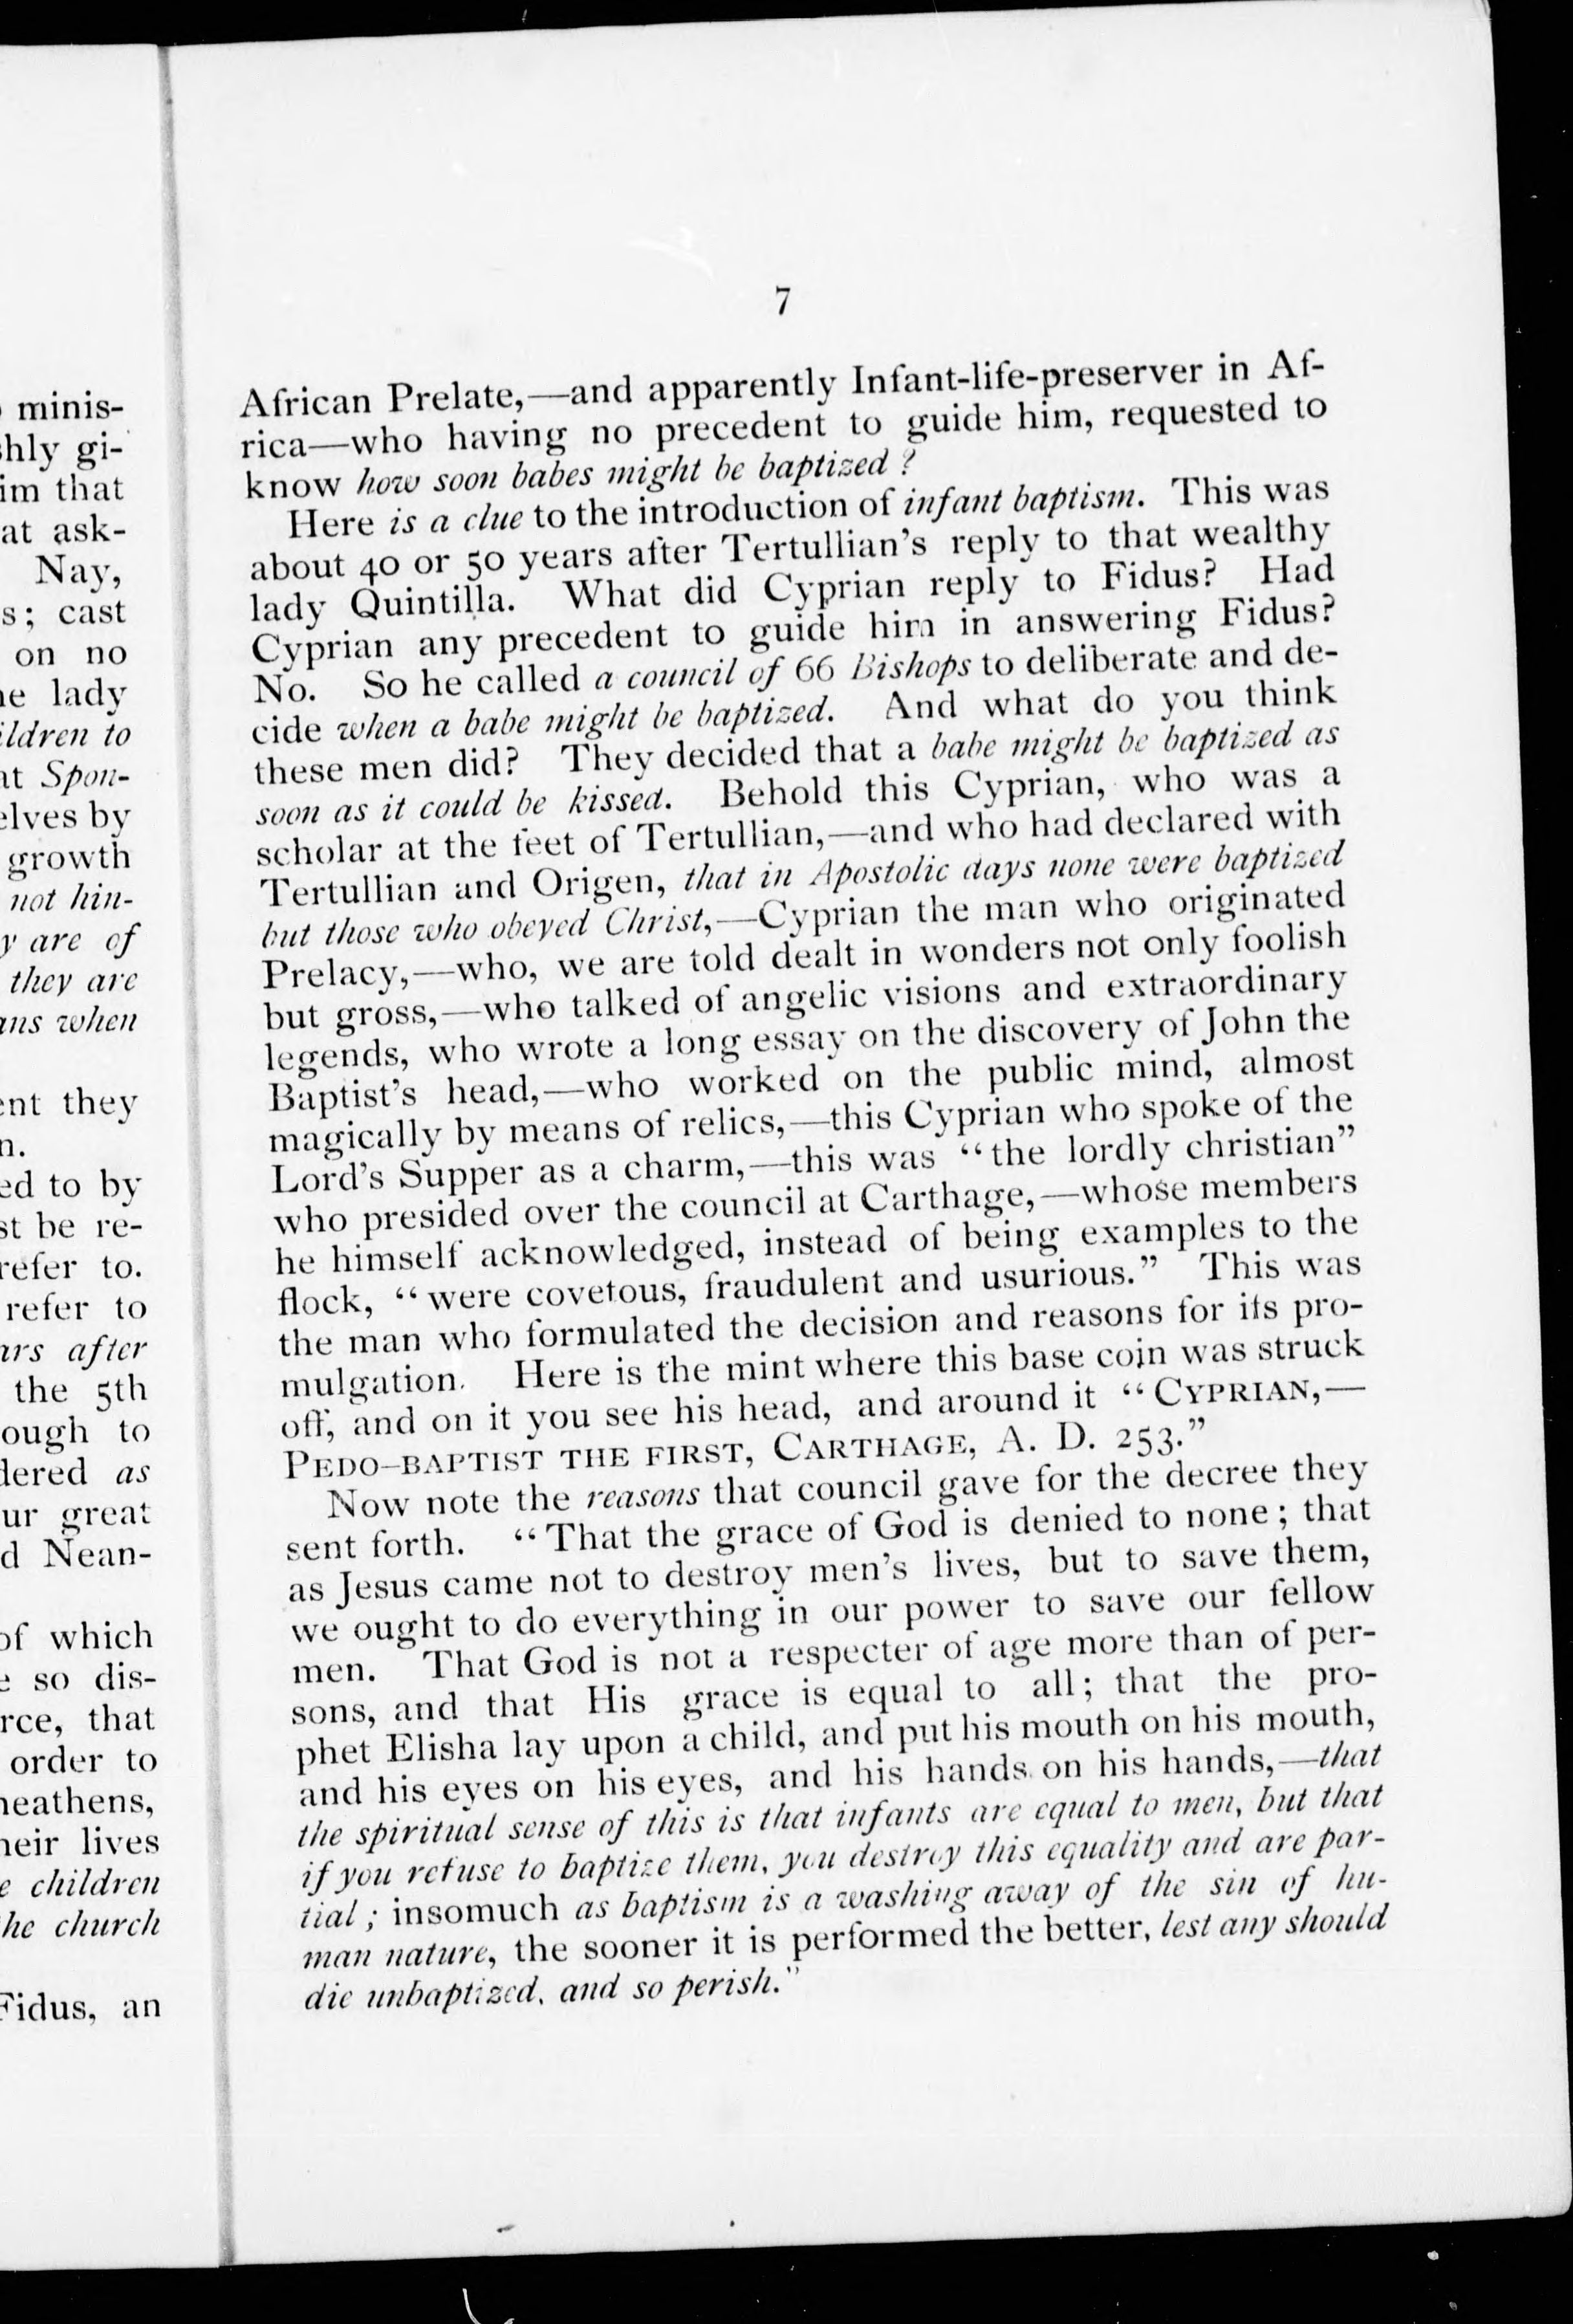 minis-
hly gi-
im that
at ask-
Nay,
s; cast
on no
lady
ildren to
at Spon-
elves by
growth
not hin-
y are of
they are
ans when
ent they
n.
ed to by
st be re-
refer to.
refer to
ars after
the 5th
ough to
dered as
ur great
d Nean-
of which
so dis-
rce, that
order to
heathens,
heir lives
children
he church
Fidus, an
7
African Prelate,—and apparently Infant-life-preserver in Af-
rica—who having no precedent to guide him, requested to
know how soon babes might be baptized?
Here is a clue to the introduction of infant baptism. This was
about 40 or 50 years after Tertullian's reply to that wealthy
lady Quintilla. What did Cyprian reply to Fidus? Had
Cyprian any precedent to guide him in answering Fidus?
No. So he called a council of 66 Bishops to deliberate and de-
cide when a babe might be baptized. And what do you think
these men did? They decided that a babe might be baptized as
soon as it could be kissed. Behold this Cyprian, who was a
scholar at the feet of Tertullian,—and who had declared with
Tertullian and Origen, that in Apostolic days none were baptized
but those who obeyed Christ,—Cyprian the man who originated
Prelacy,—who, we are told dealt in wonders not only foolish
but gross,—who talked of angelic visions and extraordinary
legends, who wrote a long essay on the discovery of John the
Baptist's head,—who worked on the public mind, almost
magically by means of relics,—this Cyprian who spoke of the
Lord's Supper as a charm,—this was "the lordly christian"
who presided over the council at Carthage,—whose members
he himself acknowledged, instead of being examples to the
flock, "were covetous, fraudulent and usurious." This was
the man who formulated the decision and reasons for its pro-
mulgation. Here is the mint where this base coin was struck
off, and on it you see his head, and around it "CYPRIAN,—
PEDO-BAPTIST THE FIRST, CARTHAGE, A. D. 253."
Now note the reasons that council gave for the decree they
sent forth. "That the grace of God is denied to none; that
as Jesus came not to destroy men's lives, but to save them,
we ought to do everything in our power to save our fellow
men. That God is not a respecter of age more than of per-
sons, and that His grace is equal to all; that the pro-
phet Elisha lay upon a child, and put his mouth on his mouth,
and his eyes on his eyes, and his hands on his hands,—that
the spiritual sense of this is that infants are equal to men, but that
if you refuse to baptize them, you destroy this equality and are par-
tial; insomuch as baptism is a washing away of the sin of hu-
man nature, the sooner it is performed the better, lest any should
die unbaptized, and so perish."